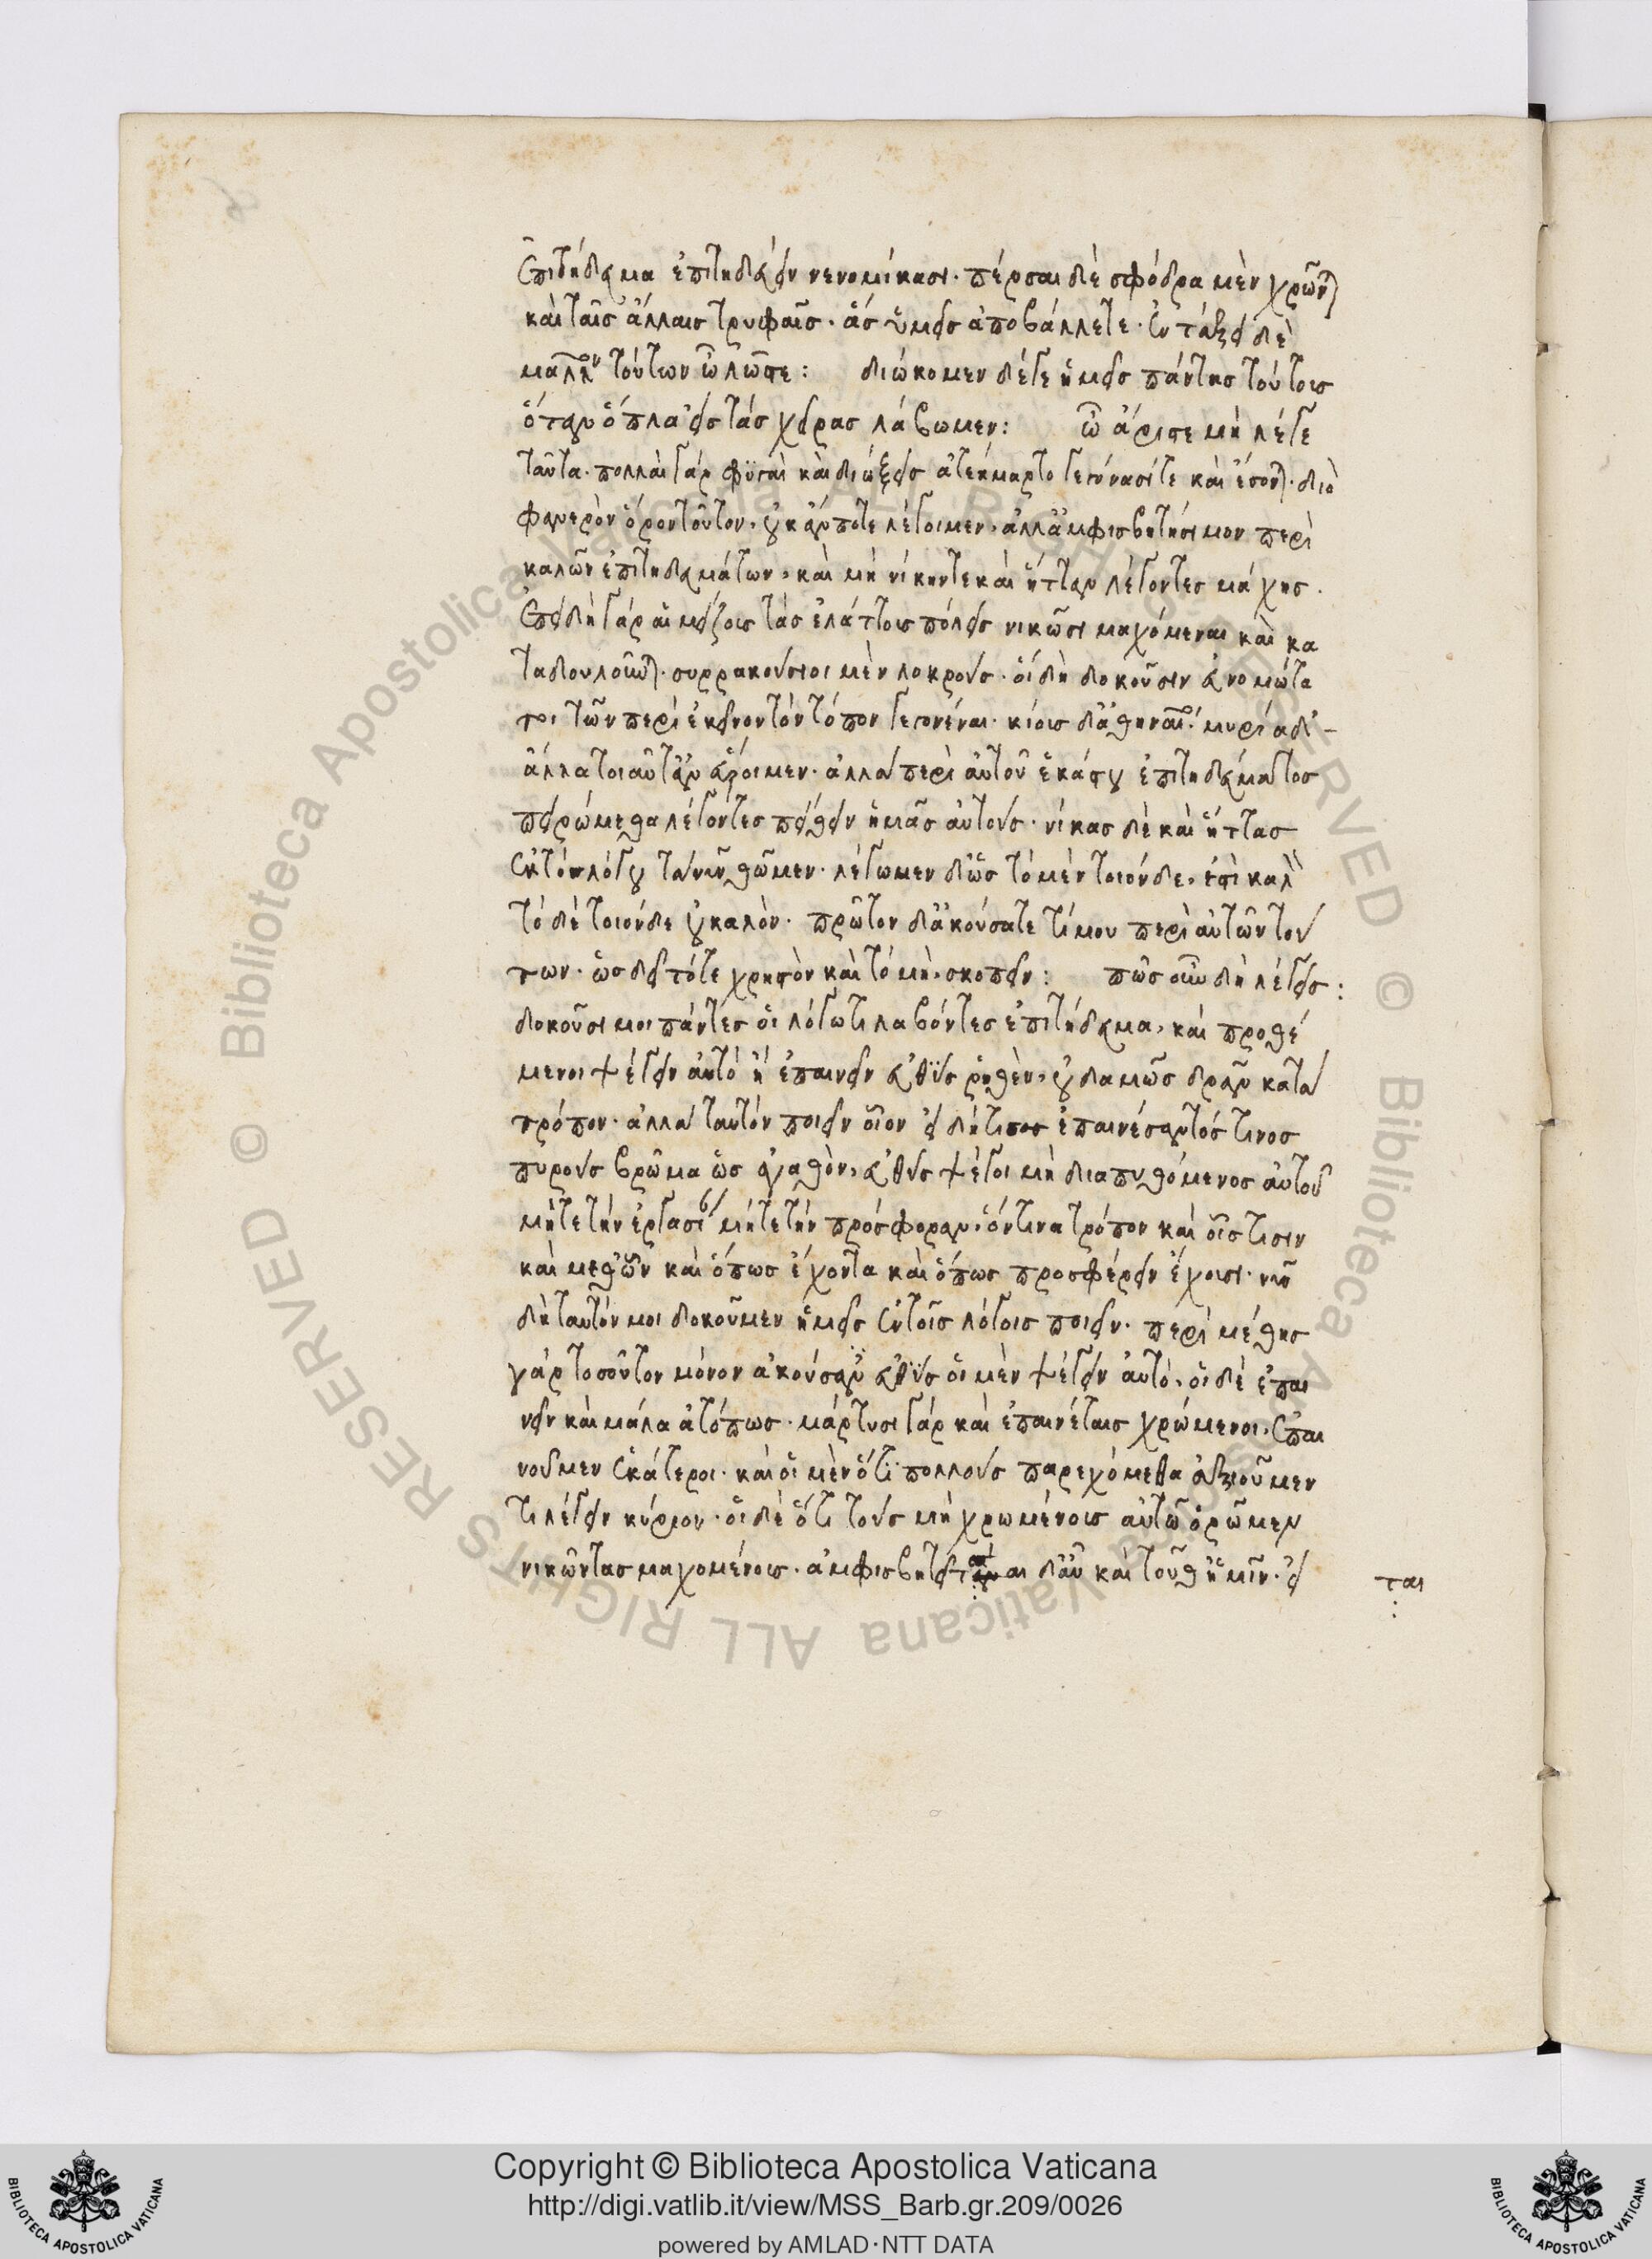 ἐπιτήδευμα ἐπιτηδεύειν νενομίκασι. πέρσαι δὲ σφόδρα μὲν χρῶνται
καὶ ταῖς ἄλλαις τρυφαῖς. ἃς ὑμεῖς ἀποβάλλετε. ἐν τάξει δὲ
μᾶλλον τούτων ὦ λῶστε: διώκομεν δέ γε ἡμεῖς πάντας τούτους
ὅταν ὅπλα εἰς τὰς χεῖρας λάβωμεν: ὦ ἄριστε μὴ λέγε
ταῦτα. πολλαὶ γὰρ φυγαὶ καὶ διώξεις ἀτέκμαρτοι γεγόνασί τε καὶ ἔσονται. διὸ
φανερὸν ὅρον τοῦτον, οὐκ ἄν ποτε λέγοιμεν, ἀλλὰ ἀμφισβητήσιμον περὶ
καλῶν ἐπιτηδευμάτων, καὶ μὴ νίκην τε καὶ ἧτταν λέγοντες μάχης.
ἐπειδὴ γὰρ αἱ μείζους τὰς ἐλάττους πόλεις νικῶσι μαχόμεναι καὶ κα
ταδουλοῦνται. συρρακούσιοι μὲν λοκρούς. οἳ δὴ δοκοῦσιν εὐνομώτα
τοι τῶν περὶ ἐκεῖνον τὸν τόπον γεγονέναι. κίους δὲ ἀθηναῖοι. μυρία δὲ
ἄλλα τοιαῦτ' ἂν εὕροιμεν. ἀλλὰ περὶ αὐτοῦ ἑκάστου ἐπιτηδεύματος
πειρώμεθα λέγοντες πείθειν ἡμᾶς αὐτούς. νίκας δὲ καὶ ἥττας
ἐκτὸς λόγου τὰ νῦν θῶμεν. λέγωμεν δ' ὡς τὸ μὲν τοιόνδε, ἐστὶ καλὸν
τὸ δὲ τοιόνδε οὐ καλόν. πρῶτον δ' ἀκούσατέ τί μου περὶ αὐτῶν τού
των. ὡς δεῖ τό τε χρηστὸν καὶ τὸ μὴ, σκοπεῖν: πῶς οὖν δὴ λέγεις:
δοκοῦσί μοι πάντες οἱ λόγῳ τι λαβόντες ἐπιτήδευμα, καὶ προθέ
μενοι ψέγειν αὐτὸ ἢ ἐπαινεῖν εὐθὺς ῥηθὲν, οὐδαμῶς δρᾶν κατὰ
τρόπον. ἀλλὰ ταυτὸν ποιεῖν οἷον εἰ δή τις ἐπαινέσαντός τινος
πυροὺς βρῶμα ὡς ἀγαθὸν, εὐθὺς ψέγοι μὴ διαπυθόμενος αὐτοῦ
μήτε τὴν ἐργασίαν μήτε τὴν πρόσφοραν, ὅντινα τρόπον καὶ οἷς τισιν
καὶ μεθ' ὧν καὶ ὅπως ἔχοντα καὶ ὅπως προσφέρειν ἔχουσι. νῦν
δὴ ταυτόν μοι δοκοῦμεν ἡμεῖς ἐν τοῖς λόγοις ποιεῖν. περὶ μέθης
γὰρ τοσοῦτον μόνον ἀκούσαντες εὐθὺς οἱ μὲν ψέγειν αὐτὸ, οἱ δὲ ἐπαι
νεῖν καὶ μάλα ἀτόπως. μάρτυσι γὰρ καὶ ἐπαινέταις χρώμενοι, ἐπαι
νοῦμεν ἑκάτεροι. καὶ οἱ μὲν ὅτι πολλοὺς παρεχόμεθα ἀξιοῦμεν
τι λέγειν κύριον. οἱ δὲ ὅτι τοὺς μὴ χρωμένους αὐτῷ ὁρῶμεν
νικῶντας μαχομένους. ἀμφισβητεῖται δ' αὖ καὶ τοῦθ' ἡμῖν. εἰ
ται
Copyright © Biblioteca Apostolica Vaticana
http://digi.vatlib.it/view/MSS_Barb.gr.209/0026
powered by AMLAD·NTT DATA
BIBLIOTECA APOSTOLICA VATICANA
BIBLIOTECA APOSTOLICA VATICANA
© Biblioteca Apostolica Vaticana ALL RIGHTS RESERVED